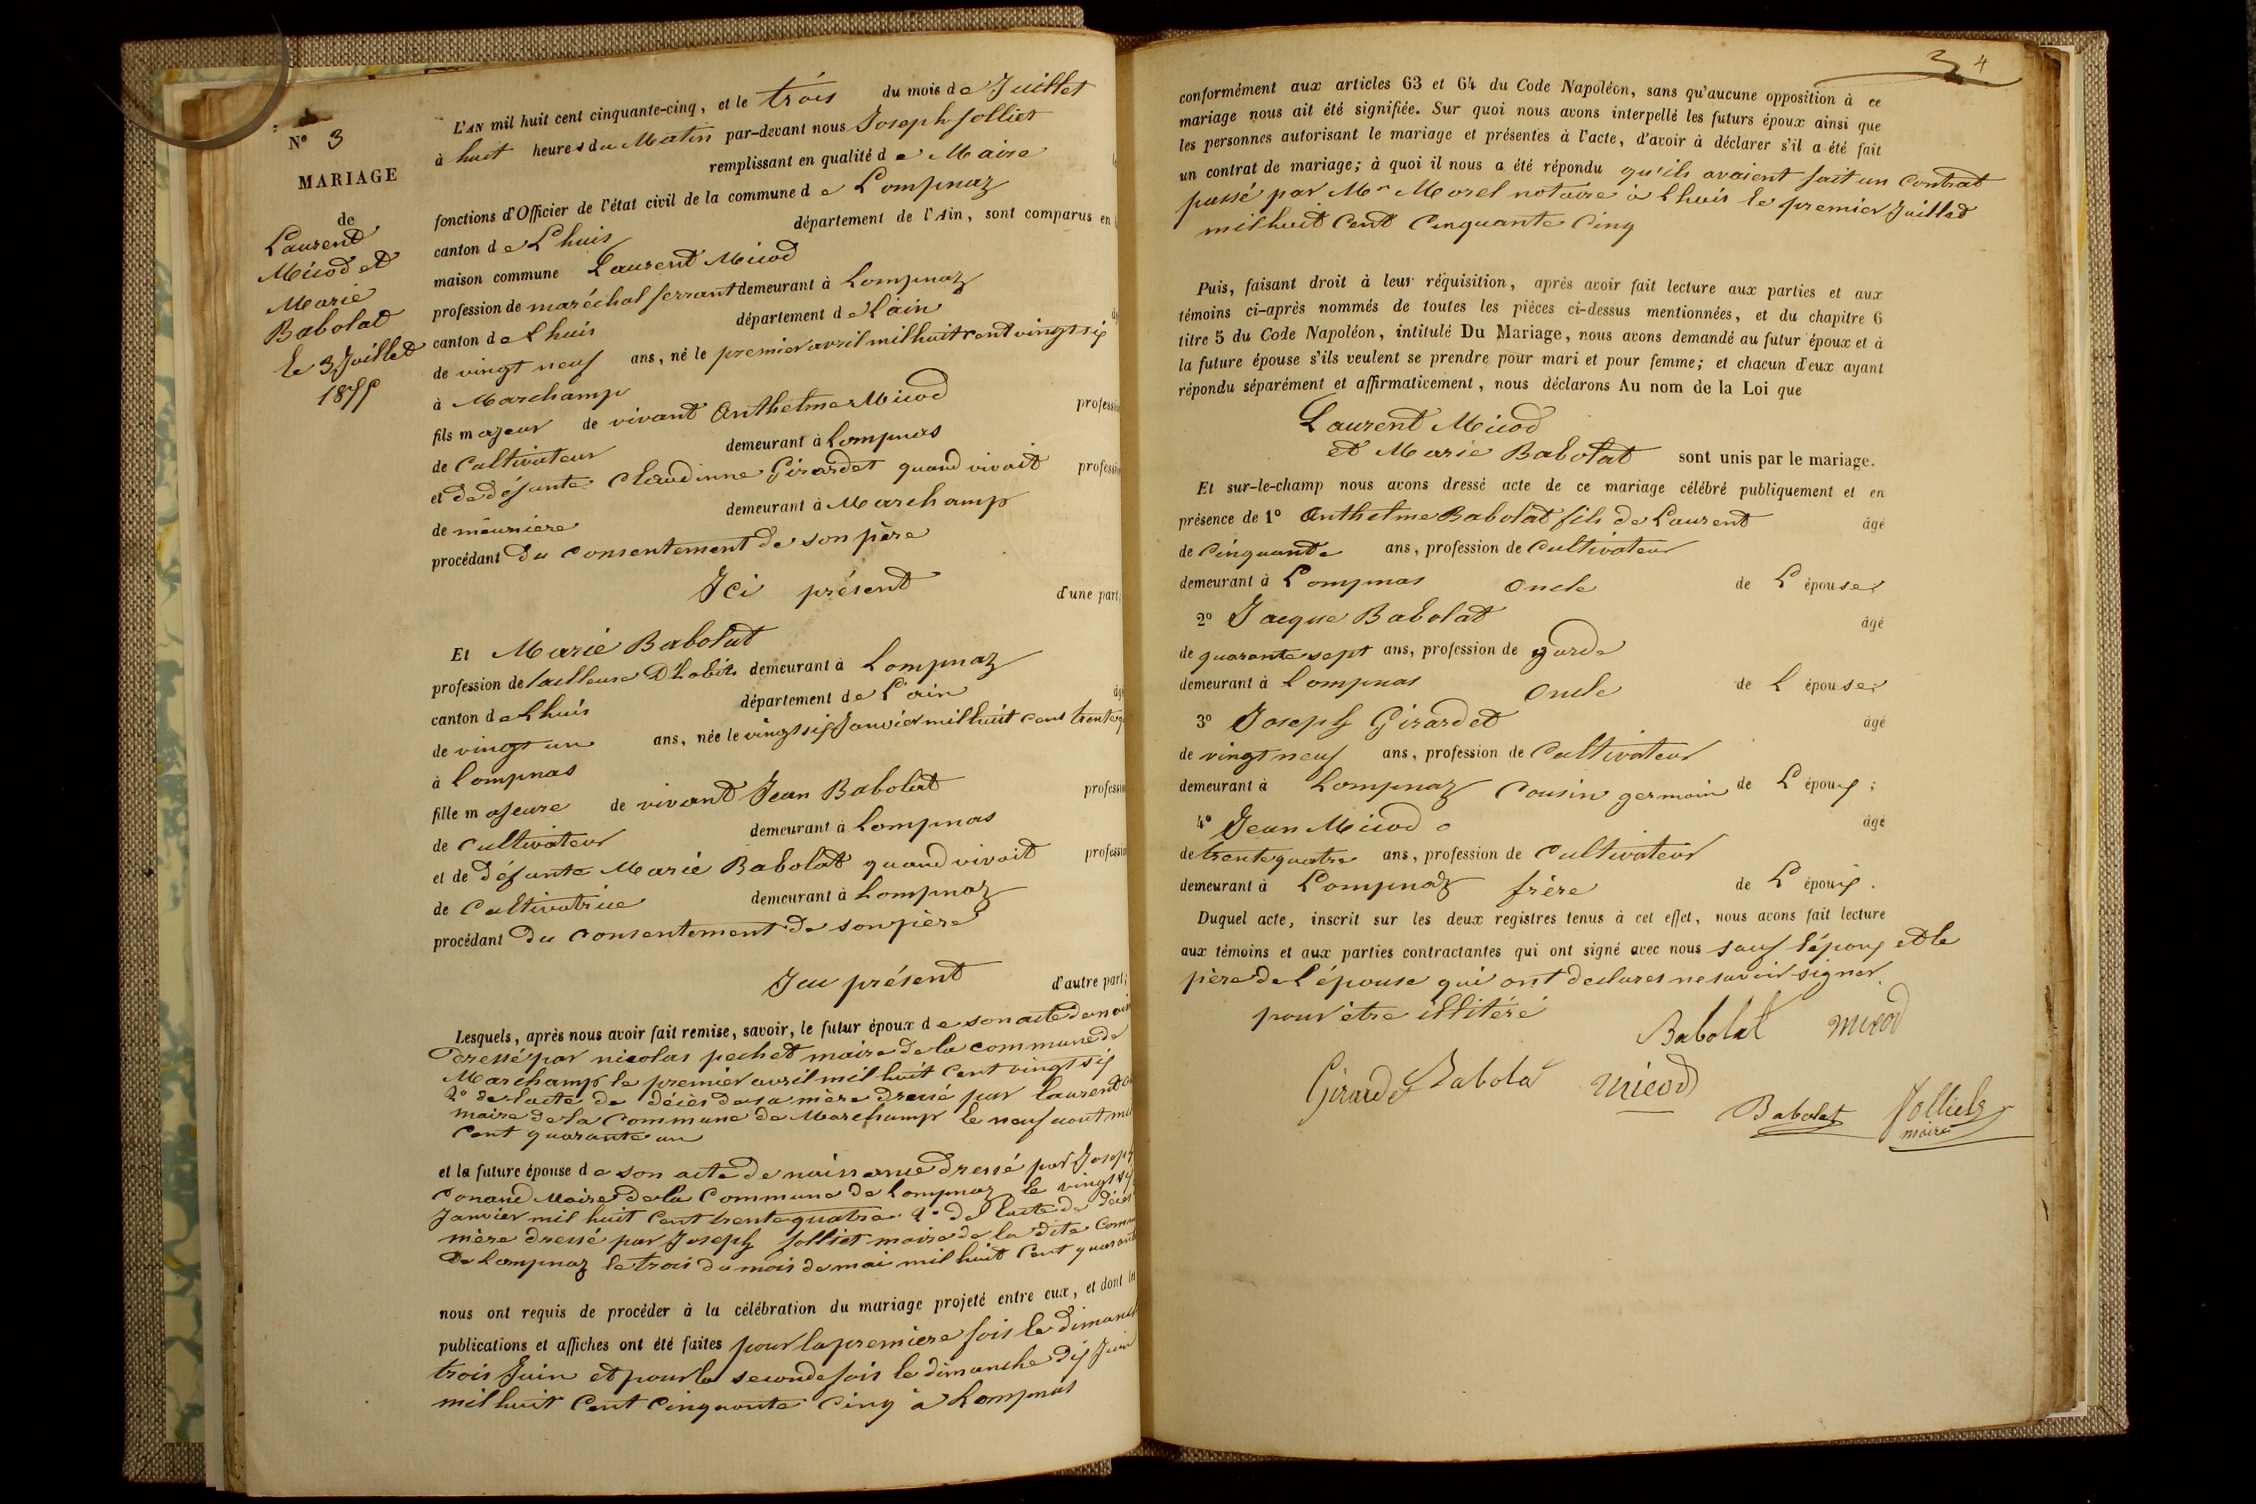 N° 3
MARIAGE
de
Laurent
Micod et
Marie
Babolat
le 3 Juillet
1855
L'AN mil huit cent cinquante-cinq, et le trois du mois de Juillet
à huit heures du Matin par-devant nous Joseph Jolliet
remplissant en qualité de Maire
fonctions d'Officier de l'état civil de la commune de Lompnaz
canton de Lhuis département de l'Ain, sont comparus en
maison commune Laurent Micod
profession de maréchal ferrant demeurant à Lompnaz
canton de Lhuis département de l'ain
de vingt neuf ans, né le premier avril mil huit cent vingt six
à Marchamp
fils majeur de vivant Anthelme Micod profession
de Cultivateur demeurant à Lompnas
et de défunte Claudinne Girardet quand vivait profession
de meunière demeurant à Marchamp
procédant du consentement de son père
Ici présent d'une part;
Et Marie Babolat
profession de tailleuse D'habits demeurant à Lompnaz
canton de Lhuis département de L'ain
de vingt un ans, née le vingt six Janvier mil huit cent trente
à Lompnas
fille majeure de vivant Jean Babolat profession
de Cultivateur demeurant à Lompnas
et de défunte Marie Babolat quand vivait profession
de Cultivatrice demeurant à Lompnaz
procédant du consentement de son père
Ici présent d'autre part;
Lesquels, après nous avoir fait remise, savoir, le futur époux de son acte de
Dressé par nicolas pechet maire de la commune de
Marchamp le premier avril mil huit cent vingt six
2° de l'acte de décès de sa mère dressé par Laurent
maire de la Commune de Marchamp le neuf aout mil
Cent quarante un
et la future épouse de son acte de naissance dressé par Joseph
Conand Maire de la Commune de Lompnaz le vingt six
Janvier mil huit Cent trente quatre 2° de l'acte de décès
mère dressé par Joseph Jolliet maire de la dite
De Lompnaz le trois du mois de mai mil huit Cent
nous ont requis de procéder à la célébration du mariage projeté entre eux, et dont les
publications et affiches ont été faites pour la premiere fois le dimanche
trois Juin et pour la seconde fois le dimanche dix Juin
mil huit Cent Cinquante Cinq à Lompnas
3 4
conformément aux articles 63 et 64 du Code Napoléon, sans qu'aucune opposition à ce
mariage nous ait été signifiée. Sur quoi nous avons interpellé les futurs époux ainsi que
les personnes autorisant le mariage et présentes à l'acte, d'avoir à déclarer s'il a été fait
un contrat de mariage; à quoi il nous a été répondu qu'ils avaient fait un Contrat
passé par Mr Morel notaire à Lhuis le premier Juillet
mil huit Cent Cinquante Cinq
Puis, faisant droit à leur réquisition, après avoir fait lecture aux parties et aux
témoins ci-après nommés de toutes les pièces ci-dessus mentionnées, et du chapitre 6
titre 5 du Code Napoléon, intitulé Du Mariage, nous avons demandé au futur époux et à
la future épouse s'ils veulent se prendre pour mari et pour femme; et chacun d'eux ayant
répondu séparément et affirmativement, nous déclarons Au nom de la Loi que
Laurent Micod
et Marie Babolat sont unis par le mariage.
Et sur-le-champ nous avons dressé acte de ce mariage célébré publiquement et en
présence de 1° Anthelme Babolat fils de Laurent âgé
de Cinquante ans, profession de Cultivateur
demeurant à Lompnas Oncle de L'épouse;
2° Jacque Babolat âgé
de quarante sept ans, profession de garde
demeurant à Lompnas Oncle de L'épouse;
3° Joseph Girardet âgé
de vingt neuf ans, profession de Cultivateur
demeurant à Lompnaz Cousin germain de L'époux;
4° Jean Micod âgé
de trente quatre ans, profession de Cultivateur
demeurant à Lompnaz frère de L'époux.
Duquel acte, inscrit sur les deux registres tenus à cet effet, nous avons fait lecture
aux témoins et aux parties contractantes qui ont signé avec nous sauf l'époux et le
père de l'épouse qui ont declares ne savoir signer
pour être illitéré
Babolat micod
Girardet Babolat micod
Babolat Jolliet
maire